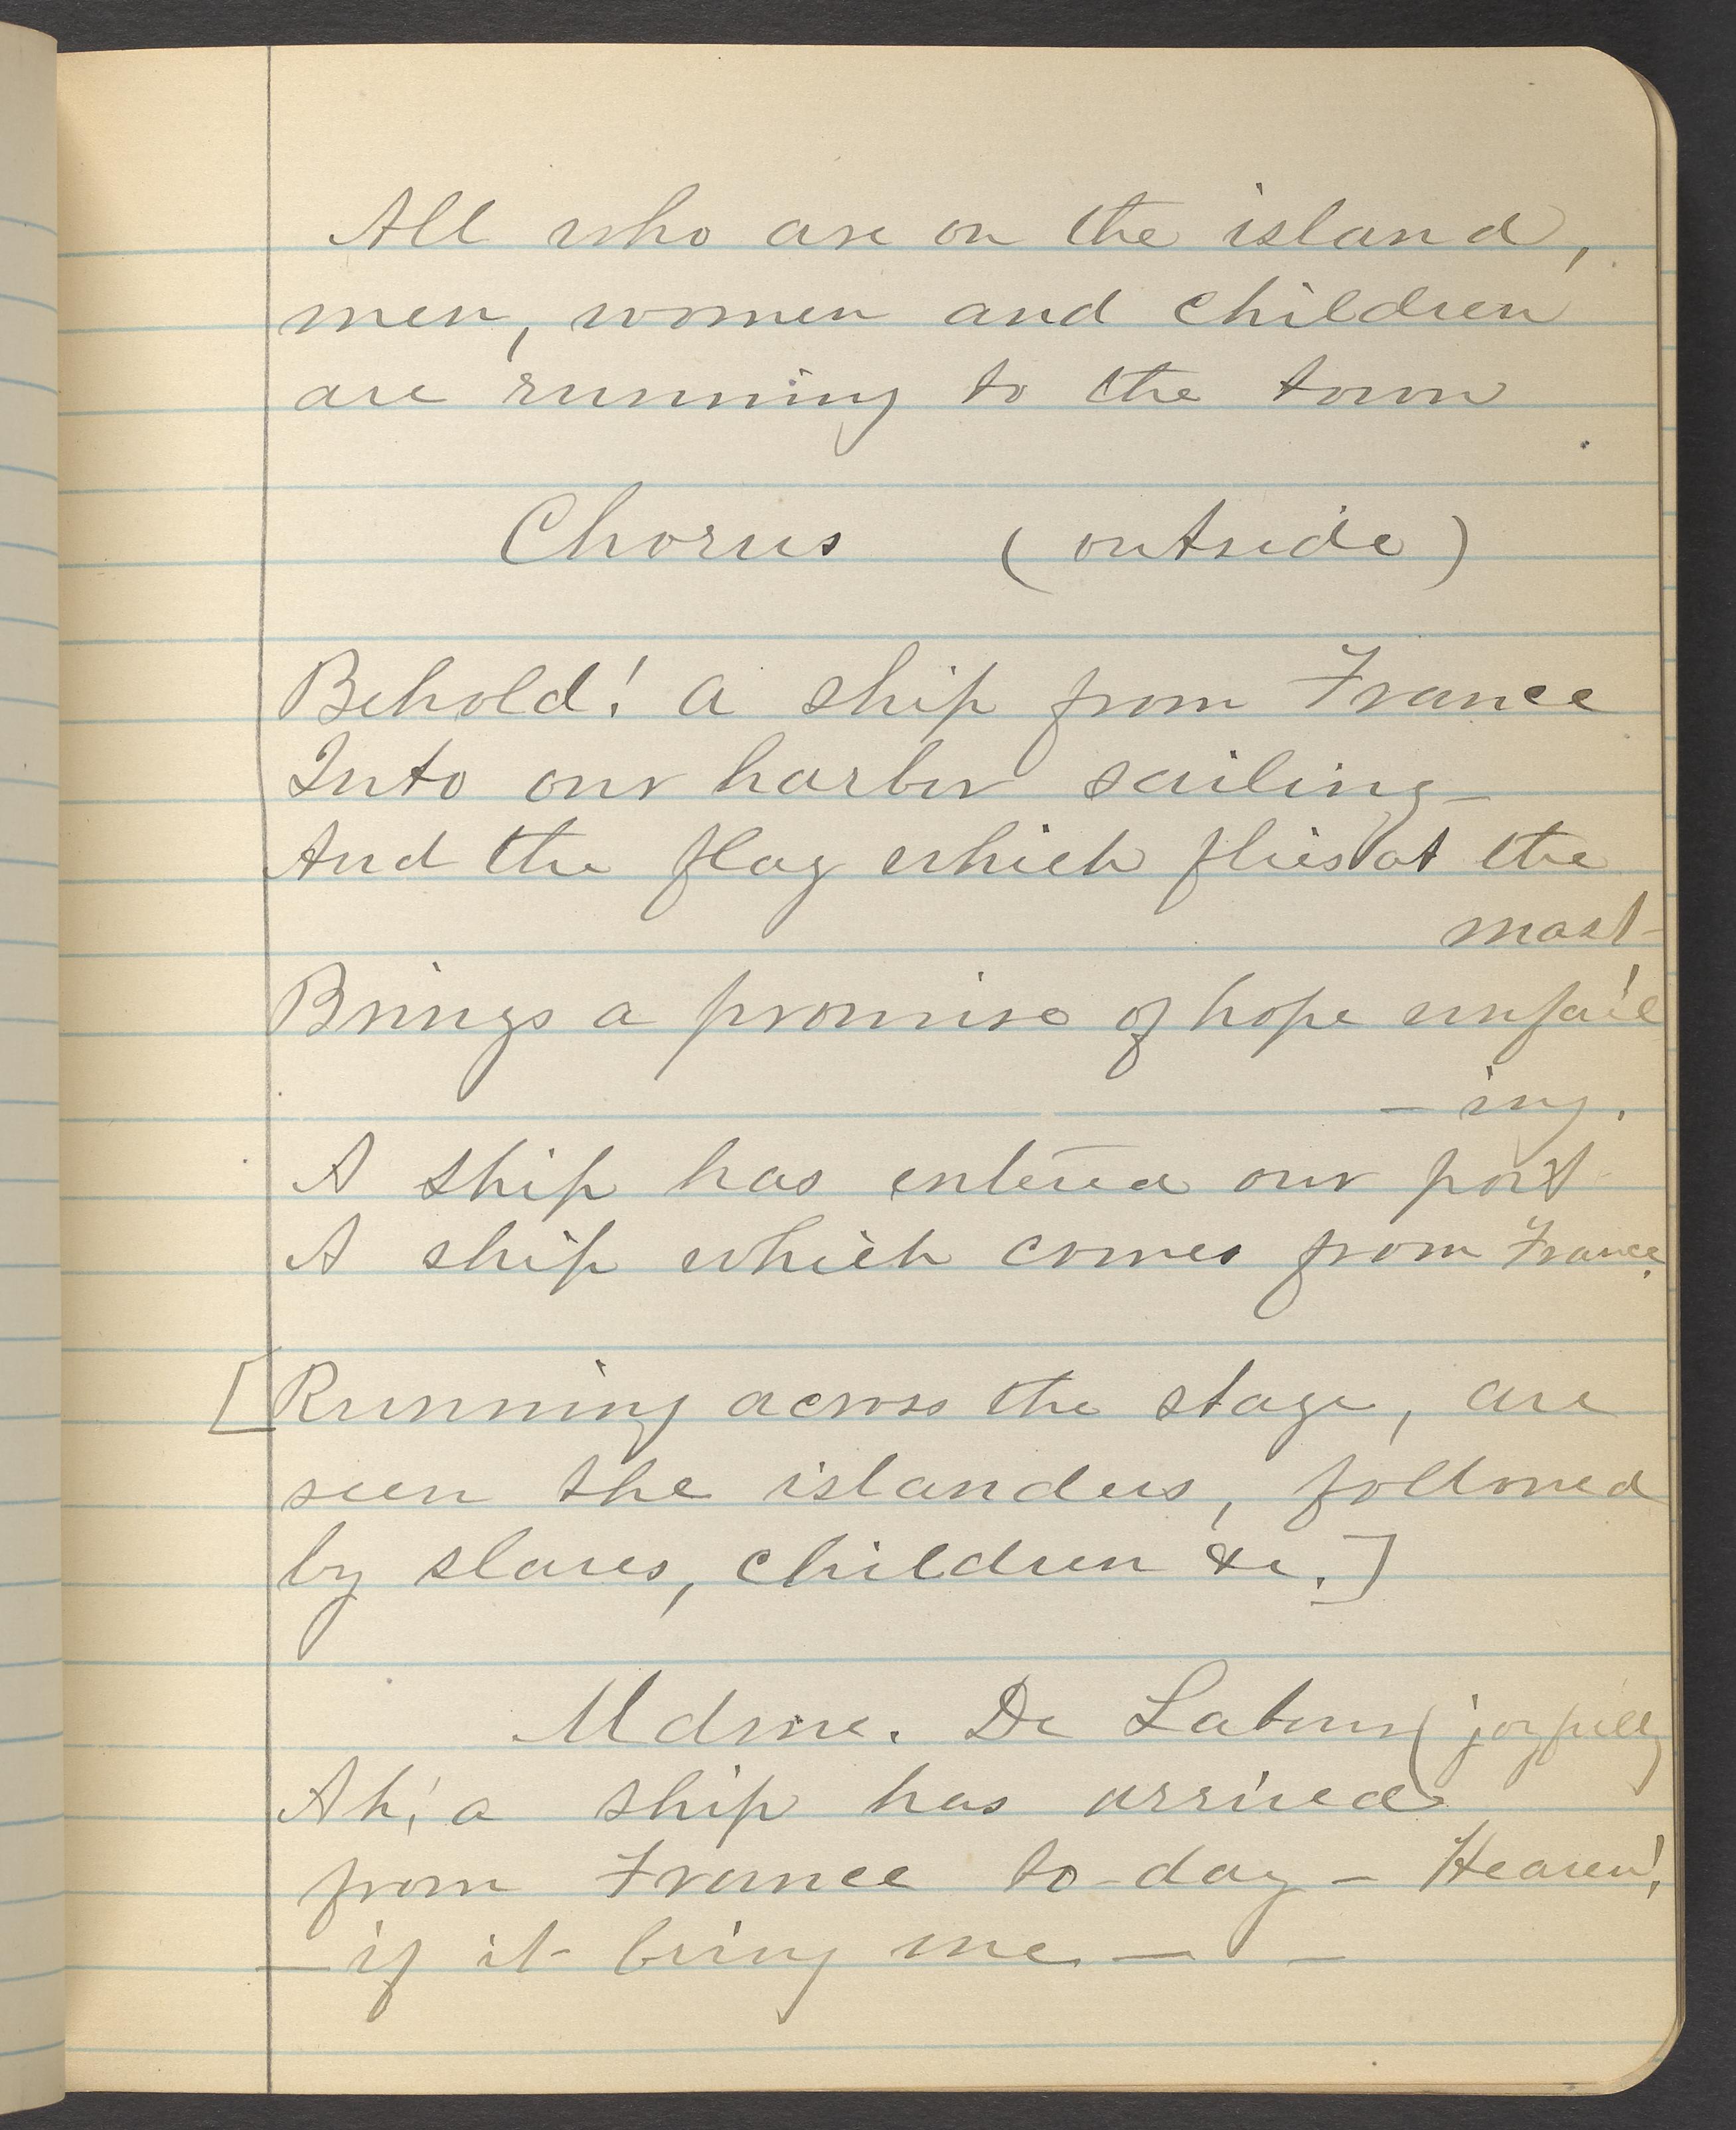 All who are on the island,
men, women and children
are running to the town
Chorus (outside)
Behold! a ship from France
Into our harbor sailing—
And the flag which flies at the
mast—
Brings a promise of hope unfail
— ing.
A ship has entered our port
A ship which comes from France.
[Running across the stage, are
seen the islanders, followed
by slaves, children &c.]
Mdme. De Latour (joyfully)
Ah! a ship has arrived
from France to-day — Heaven!
— if it bring me — —